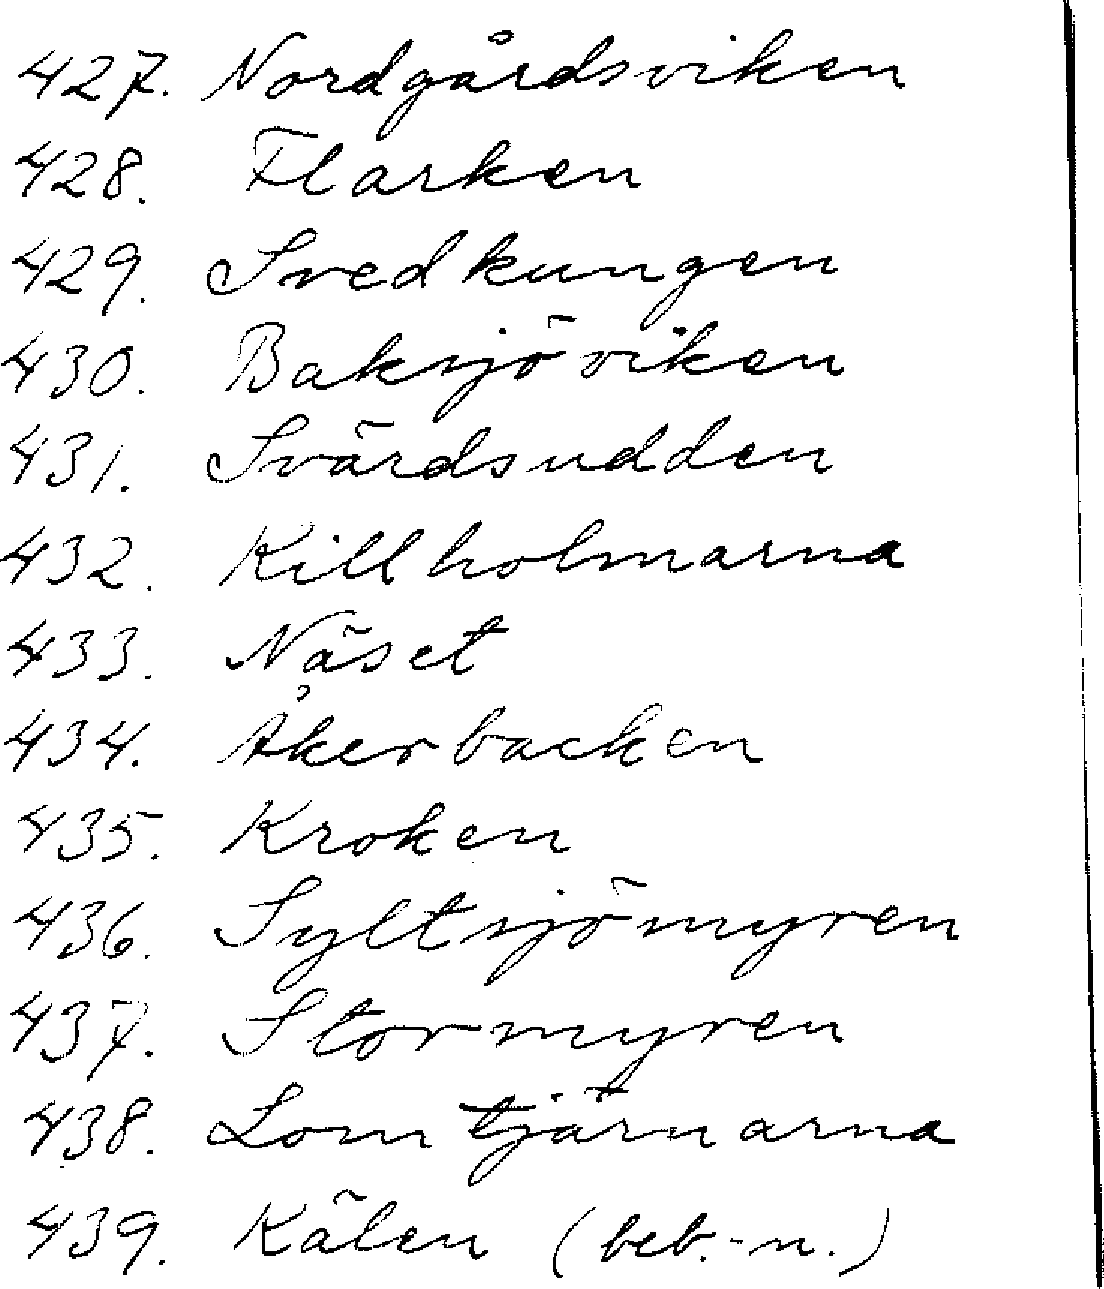 427. Nordgårdsviken
428. Flarken
429. Svedkungen
430. Baksjöviken
431. Svärdsudden
432. Killholmarna
433. Näset
434. Åkerbacken
435. Kroken
436. Syltsjömyren
437. Stormyren
438. Lomtjärnarna
439. Kälen (beb.-n.)